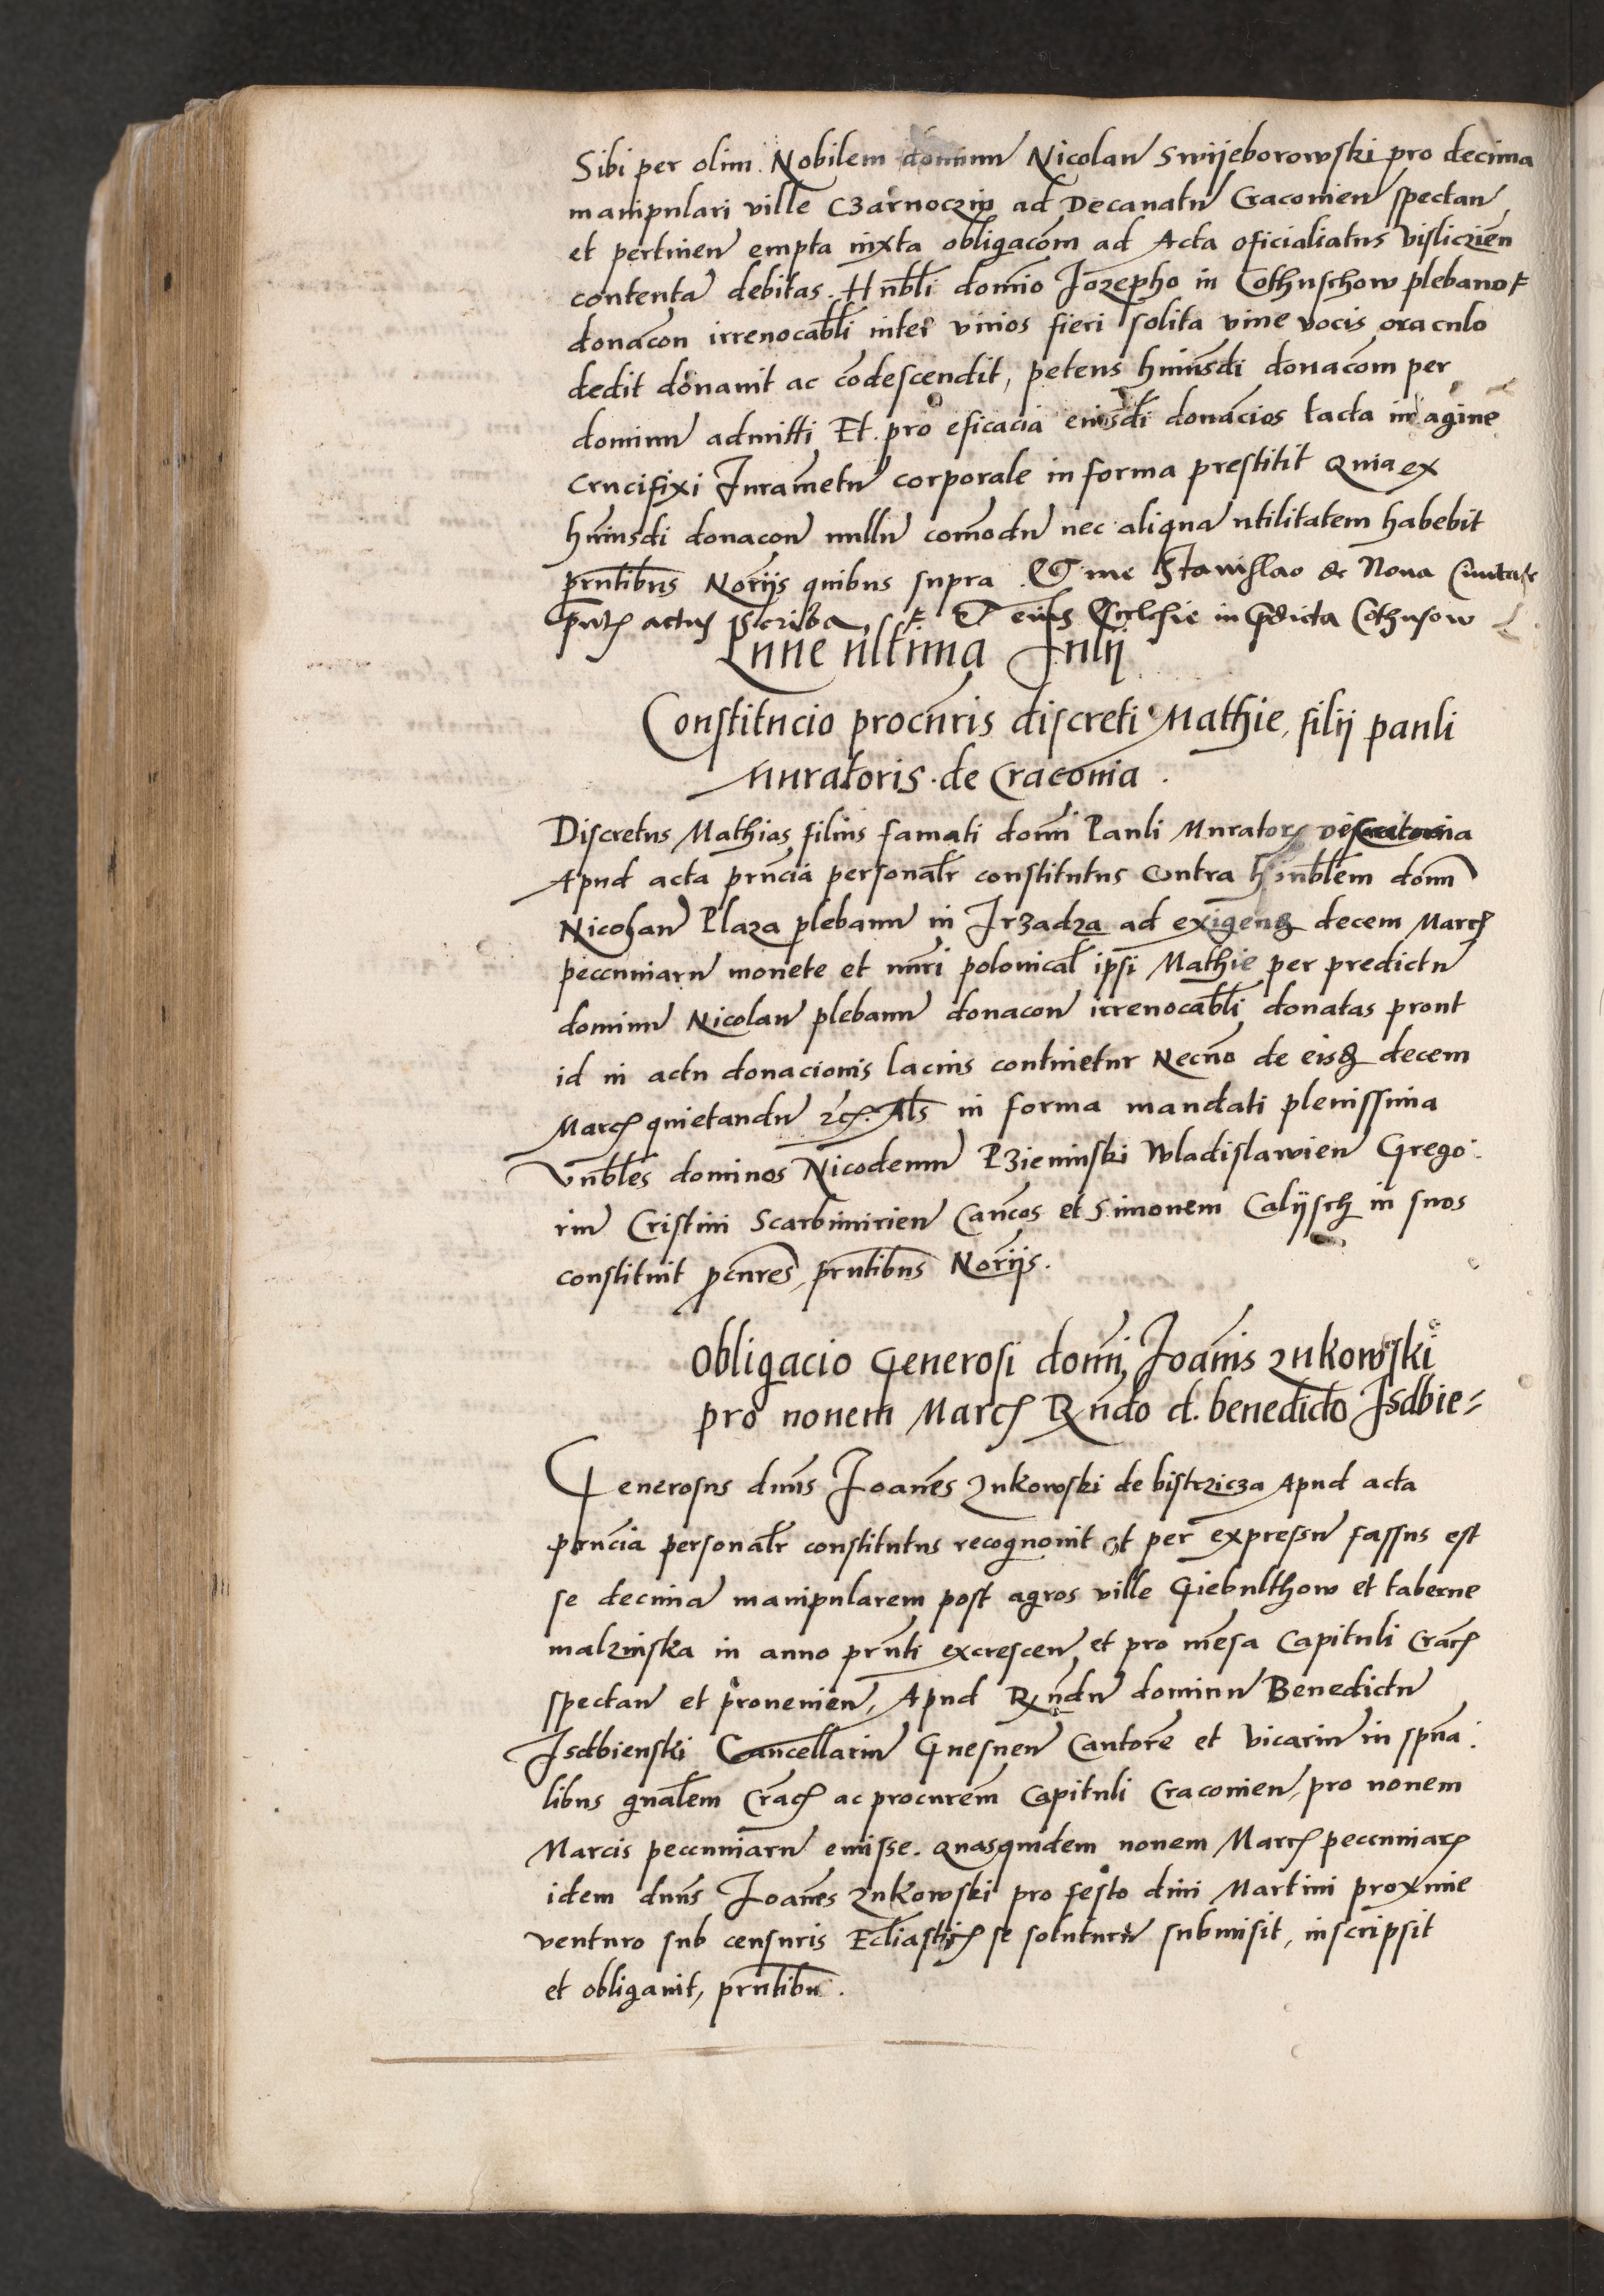 Sibi per olim Nobilem dominu Nicolau Swijeborowski pro decima
manipulari ville Czarnoczin ad Decanatu Cracouien spectan
et pertinen empta iuxta obligacom ad Acta oficialiatus Visliczien
contenta debitas. Hnbli domino Jozepho in Cothuschow plebano
donacon irreuocabli inter viuos fieri solita viue vocis oraculo
dedit donauit ac codescendit, petens huiusdi donacom per
dominu admitti Et pro eficacia eiusdi donacios tacta imagine
crucifixi Jurametu corporale in forma prestitit Quia ex
huiusdi donacon nullu comodu nec aliqua utilitatem habebit
prntibus Norijs quibus supra Et me Stanislao de Noua Ciuitate
pntis actus scriba Et eius Ecclesie in predicta Cothusow
Lune ultima Julij
Constitucio procuris discreti Mathie, filij pauli
Muratoris de Cracouia.
Discretus Mathias filius famati domi Pauli Murator de
Apud acta prncia personalr constitutus contra hnblem domn
Nicolau Plaza plebanu in Irzadza ad exigend decem Marcs
peccuniaru monete et nuri polonical ipsi Mathie per predictu
dominu Nicolau plebanu donacon irreuocabli donatas prout
id in actu donacionis lacius continetur Necno de eisd decem
Marcs quietandu etc. Als in forma mandati plenissima
Vnbles dominos Nicodemu Pzieminski Wladislawien Grego:
riu Cristini Scarbimirien Cancos et Simonem Calijsch in suos
constituit pcures, prntibus Norijs.
Obligacio Generosi domi Joanis Zukowski
pro nouem Marcs Rndo d. benedicto Isdbie=
Generosus dnus Joanes Zukowski de bistrzicza Apud acta
prncia personalr constitutus recognouit et per expressu fassus est
se decima manipularem post agros ville Giebulthow et taberne
malzinska in anno prnti excrescen et pro mesa Capituli Cracs
spectan et prouenien, Apud Rndu dominu Benedictu
Isdbienski Cancellariu Gnesnen Cantore et Vicariu in spna:
libus gnalem Cracs ac procurem Capituli Cracouien, pro nouem
Marcis peccuniaru emisse. Quasquidem nouem Marcs peccuniars
idem dnus Joanes Zukowski pro festo diui Martini proxime
venturo sub censuris Ecliasticis se soluturu submisit, inscripsit
et obligauit, prntibus.